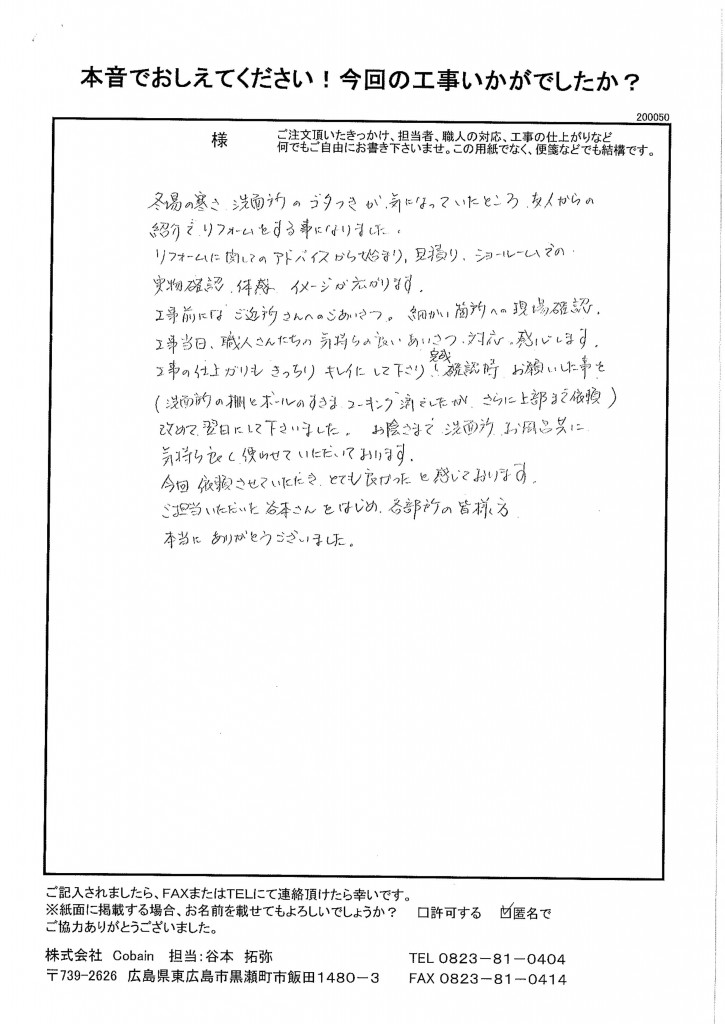 本音でおしえてください！今回の工事いかがでしたか？
200050
様
ご注文頂いたきっかけ、担当者、職人の対応、工事の仕上がりなど
何でもご自由にお書き下さいませ。この用紙でなく、便箋などでも結構です。
冬場の寒さ、洗面所のガタつきが、気になっていたところ、友人からの
紹介で、リフォームをする事になりました。
リフォームに関してのアドバイスから始まり、見積り、ショールームでの
実物確認、体感、イメージが広がります。
工事前には、ご近所さんへのごあいさつ。細かい箇所への現場確認。
工事当日、職人さんたちの気持ちの良いあいさつ、対応。感心します。
工事の仕上がりもきっちりキレイにして下さり、完成確認時、お願いした事を
(洗面所の棚とボールのすきま、コーキング済でしたが、さらに上部まで依頼)
改めて、翌日にして下さいました。お陰さまで、洗面所、お風呂共に
気持ち良く使わせていただいております。
今回依頼させていただき、とても良かったと感じております。
ご担当いただいた谷本さんをはじめ、各部所の皆様方
本当にありがとうございました。
ご記入されましたら、FAXまたはTELにて連絡頂けたら幸いです。
※紙面に掲載する場合、お名前を載せてもよろしいでしょうか？ □許可する ☑匿名で
ご協力ありがとうございました。
株式会社 Cobain 担当：谷本 拓弥 TEL 0823－81－0404
〒739-2626 広島県東広島市黒瀬町市飯田1480－3 FAX 0823－81－0414